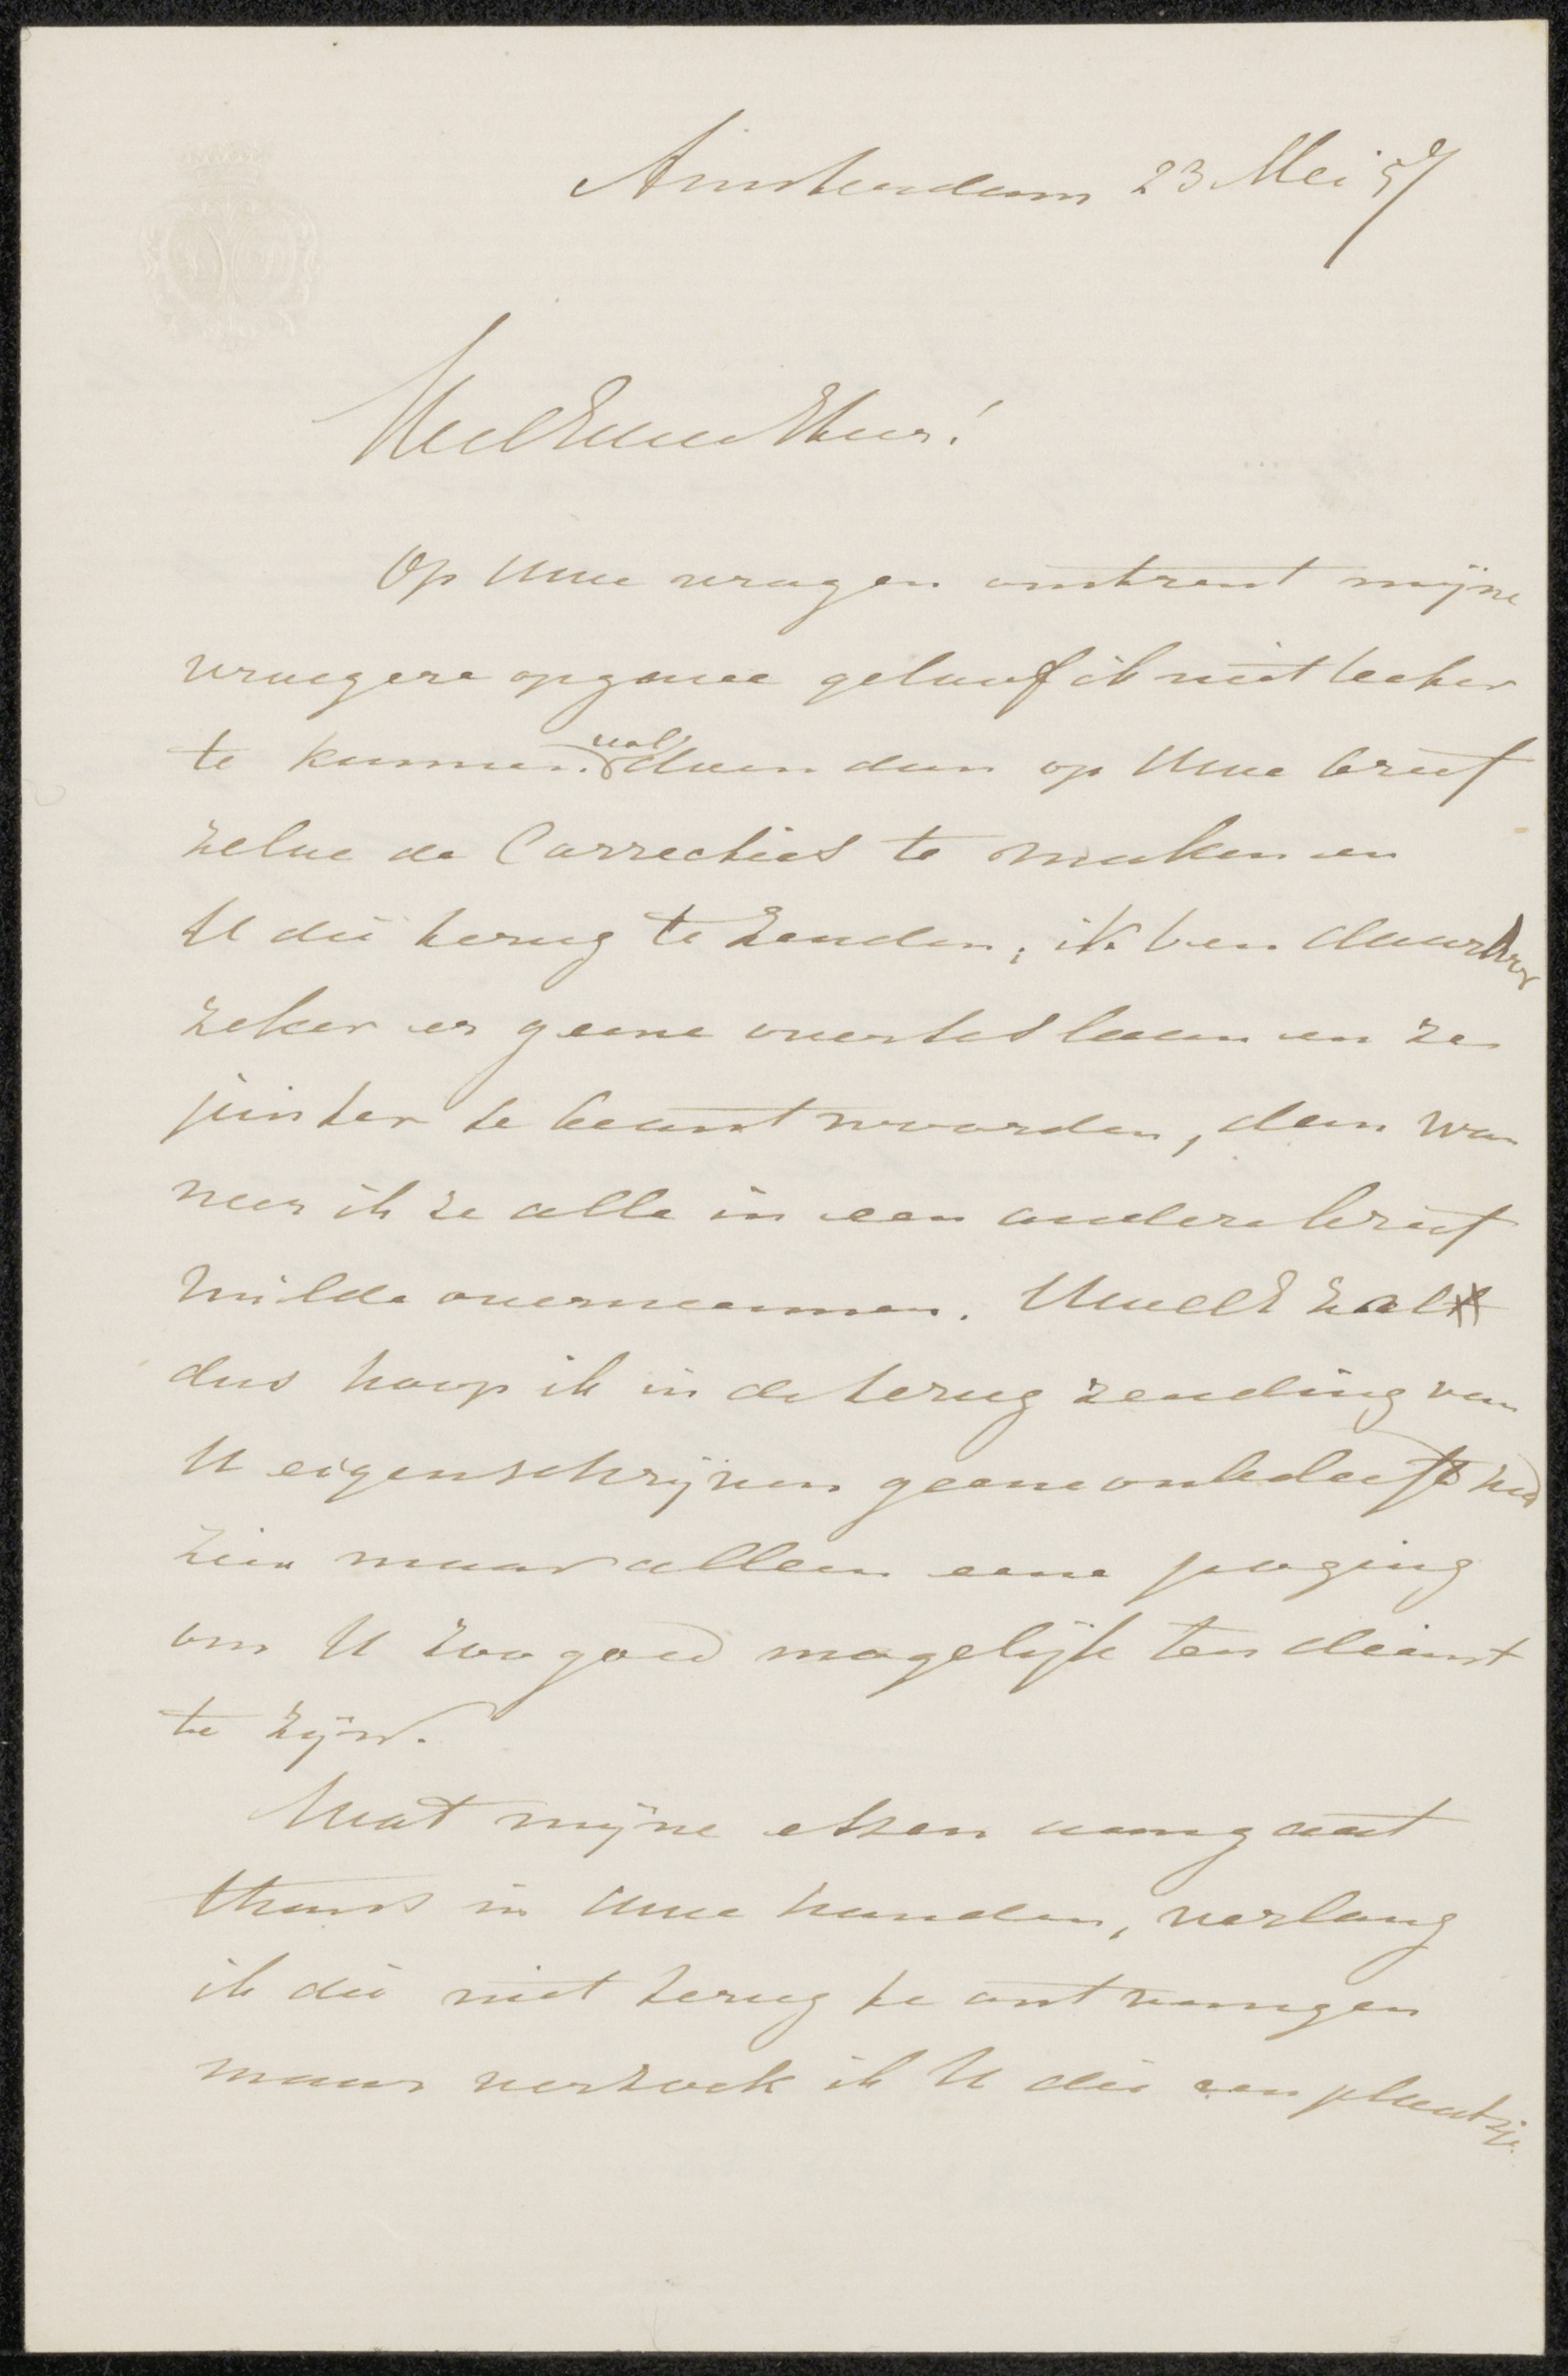 Amsterdam 23 Mei 57
WelEdele Heer!
Op Uwe vragen omtrent mijne
vroegere opgave geloof ik niet beter
te kunnen voldoen dan op Uwe brief
zelve de Correcties te maken en
U die terug te zenden, ik ben daardoor
zeker er geene over te slaan en ze
juister te beantwoorden, dan wan
neer ik ze alle in een andere brief
wilde overneemen. UwelE zal
dus hoop ik in de terug zending van
U eigenschrijven geene onbeleeftheid
zien maar alleen eene poging
om U zoo goed mogelijk ten dienst
te zijn.
Wat mijne etsen aangaat
thans in Uwe handen, verlang
ik die niet terug te ontvangen
maar verzoek ik U die een plaatsje